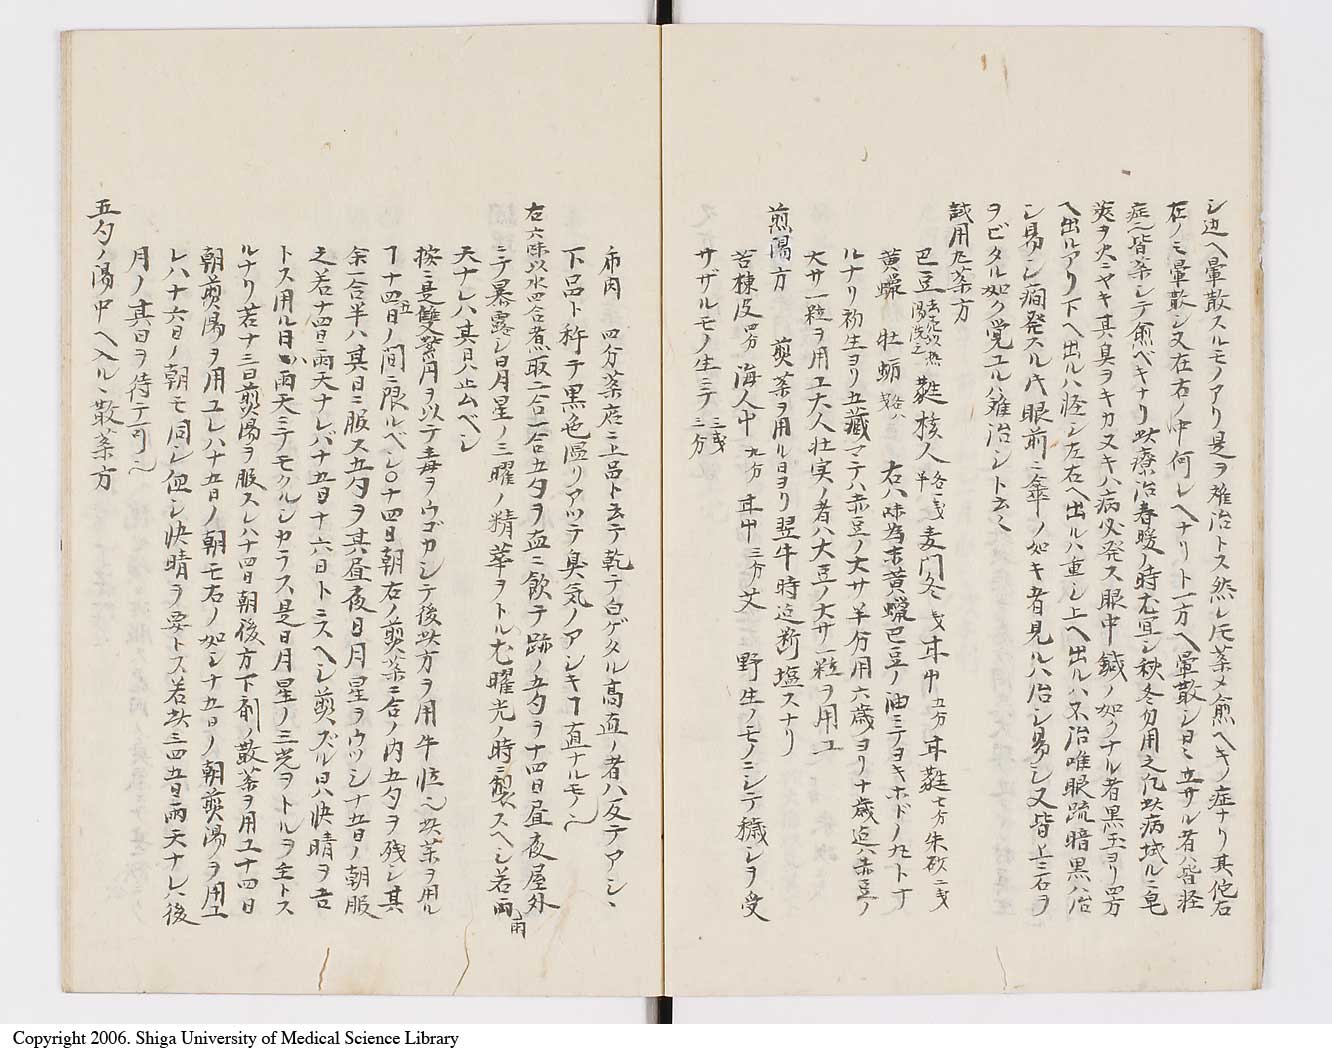 シ辺ヘ暈散スルモノアリ是ヲ難治トス然レ𪜈薬メ愈ヘキノ症ナリ其佗右
在ノモ暈散シ又在右ノ中何レヘナリト一方ヘ暈散シヨミ立サル者ハ皆軽
症〽皆薬シテ愈ベキナリ此療治春暖ノ時尤冝シ秋冬分用之凡此病拭ルニ皂
莢ヲ火ニヤキ其臭ヲキカヌキハ病必発ス眼中鍼ノ如クナル者黒玉ヨリ四方
ヘ出ルアリ下ヘ出ルハ怪シ左右ヘ出ルハ重シ上ヘ出ルハ不治唯眼疏暗黒ハ治
シ易シ病発スル𪜈眼前ニ傘ノ如キ者見ルハ治シ易シ又皆上ニ石ヲ
ヲビタル如ク覚ユルハ難治シト云〻
試用丸薬方
巴豆 去売以熱湯洗之 蕤核人 各一戔半 麦門冬 戔 耳中 五分 耳蕤 七分 朱砂 二戔
黄蝋 牡蛎 右八味為末黄蝋巴豆ノ油ミテヨキホドノ丸ト丁
ルナリ初生ヨリ五歳マテハ赤豆ノ大サ半分用六歳ヨリナ歳迄ハ赤豆ノ
大サ一粒ヲ用ユ大人壮実ノ者ハ大豆ノ大サ一粒ヲ用ユ
煎湯方 煎薬ヲ用ル日ヨリ翌牛時迄断塩スナリ
苦楝皮 四分 海人中 九分 耳中 三分 艾 野生ノモノニシテ穢レヲ受
サザルモノ生ミテ 三戔三分
布肉 四分薬店ニ上品ト云テ乾テ白ゲタル高直ノ者ハ反テアシヽ
下品ト称テ黒色湿リアツテ臭気ノアシキヿ直ナルモノ〽
右六味以水四合煮取二合一合五勺ヲ皿ニ飲テ跡ノ五勺ヲ十四日昼夜屋外
ニテ暴露シ日月星ノ三曜ノ精華ヲトル尤曜光ノ時ニ製スヘシ若雨
天ナレハ其日ハ止ムベシ
按ニ是雙紫円ヲ以テ毒ヲウゴカシテ後此方ヲ用牛位〽此薬ヲ用ル
ヿ十四五日ノ間ニ限ルベシ〇十四日朝右ノ煎薬二合ノ内五勺ヲ残シ其
余一合半ハ其日ニ服ス五勺ヲ其昼夜日月星ヲウツシ十五日ノ朝服
之若十四日ニ雨天ナレバ十五日十六日トニスヘシ煎ズル日ハ快晴ヲ吉
トス用ル日ハ雨天ミテモクルシカラス是日月星ノ三光ヲトルヲ主トス
ルナリ若十三日煎湯ヲ服スレハ十四日朝後方下剤ノ散薬ヲ用ユ十四日
朝煎湯ヲ用ユレハ十五日ノ朝モ右ノ如シ十五日ノ朝煎湯ヲ用ユ
レハ十六日ノ朝モ同シ但シ快晴ヲ要トス若此三四五日雨天ナレハ後
月ノ其日ヲ待テ可〽
五勺ノ湯中ヘ入ルヽ散薬方
Copyright 2006. Shiga University of Medical Science Library